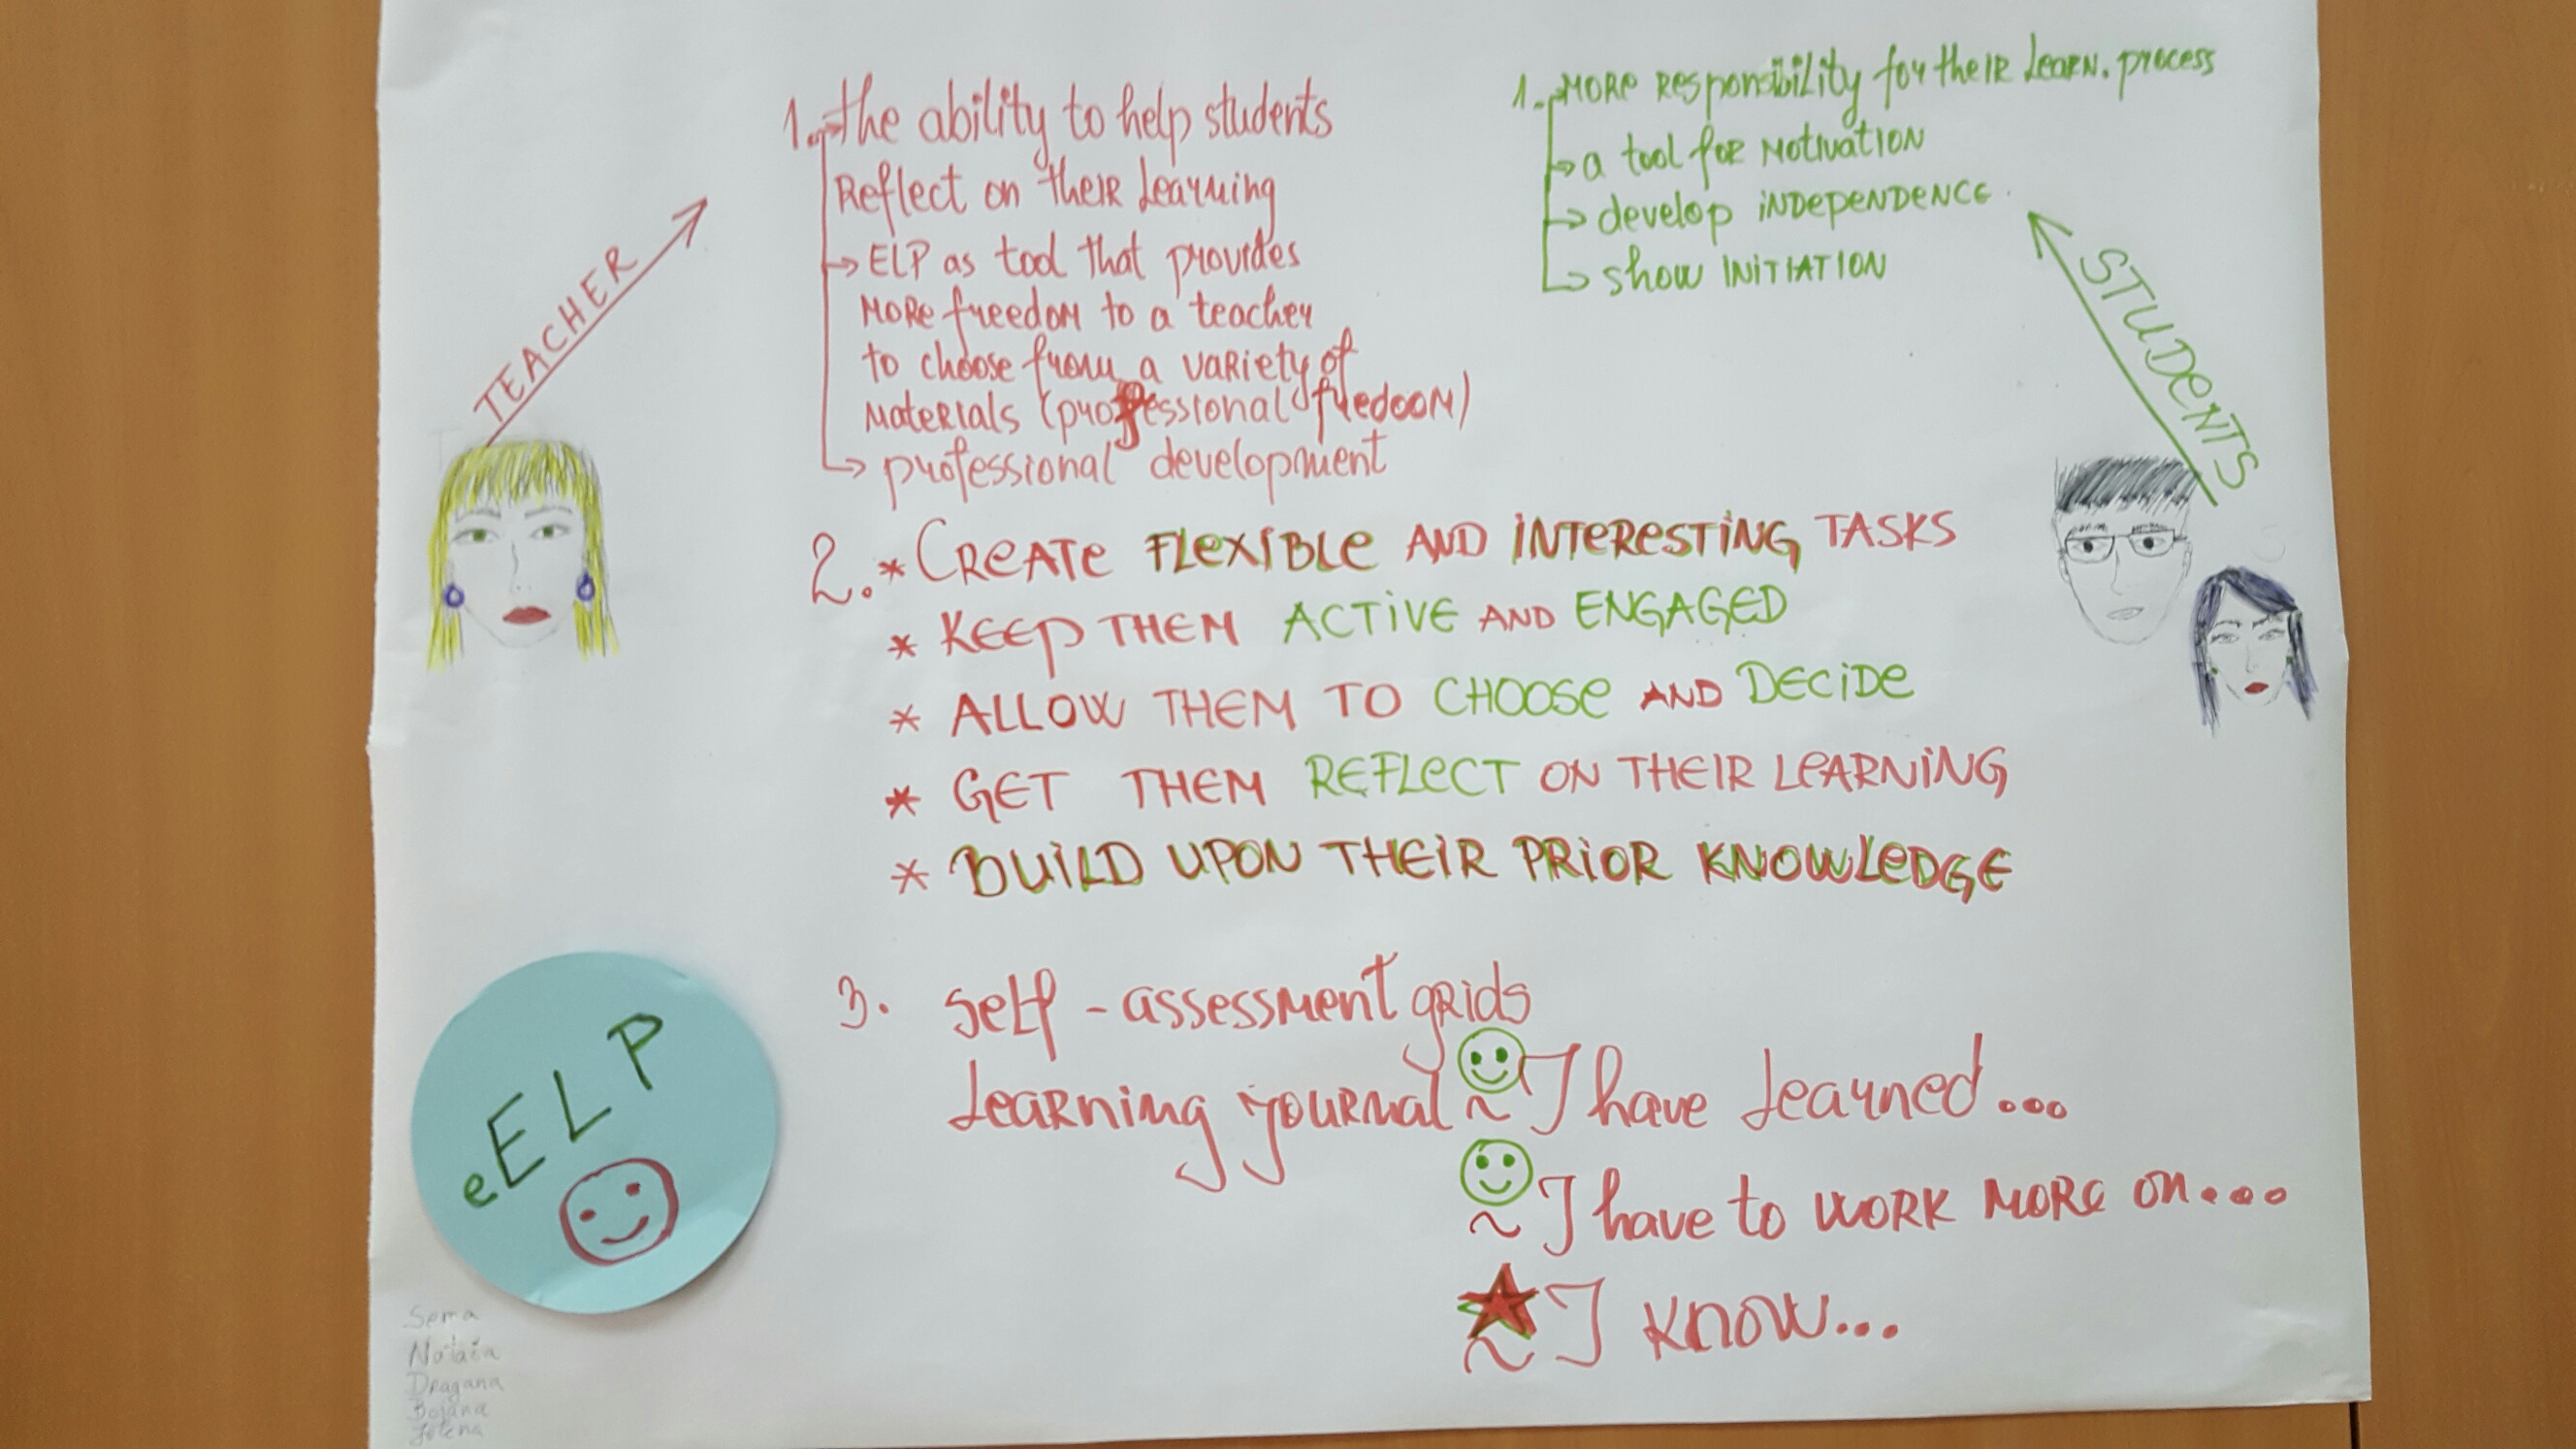 TEACHER
1. the ability to help students
Reflect on their learning
ELP as tool that provides
more freedom to a teacher
to choose from a variety of
materials (professional freedoom)
professional development
1. more responsibility for their learn. process
a tool for motivation
develop independence
show initiation
STUDENTS
2. * CREATE FLEXIBLE AND INTERESTING TASKS
* KEEP THEM ACTIVE AND ENGAGED
* ALLOW THEM TO CHOOSE AND DECIDE
* GET THEM REFLECT ON THEIR LEARNING
* BUILD UPON THEIR PRIOR KNOWLEDGE
3. self-assessment grids
learning journal ~ I have learned...
~ I have to work more on....
~ I know...
eELP
Sema
Nataša
Dragana
Bojana